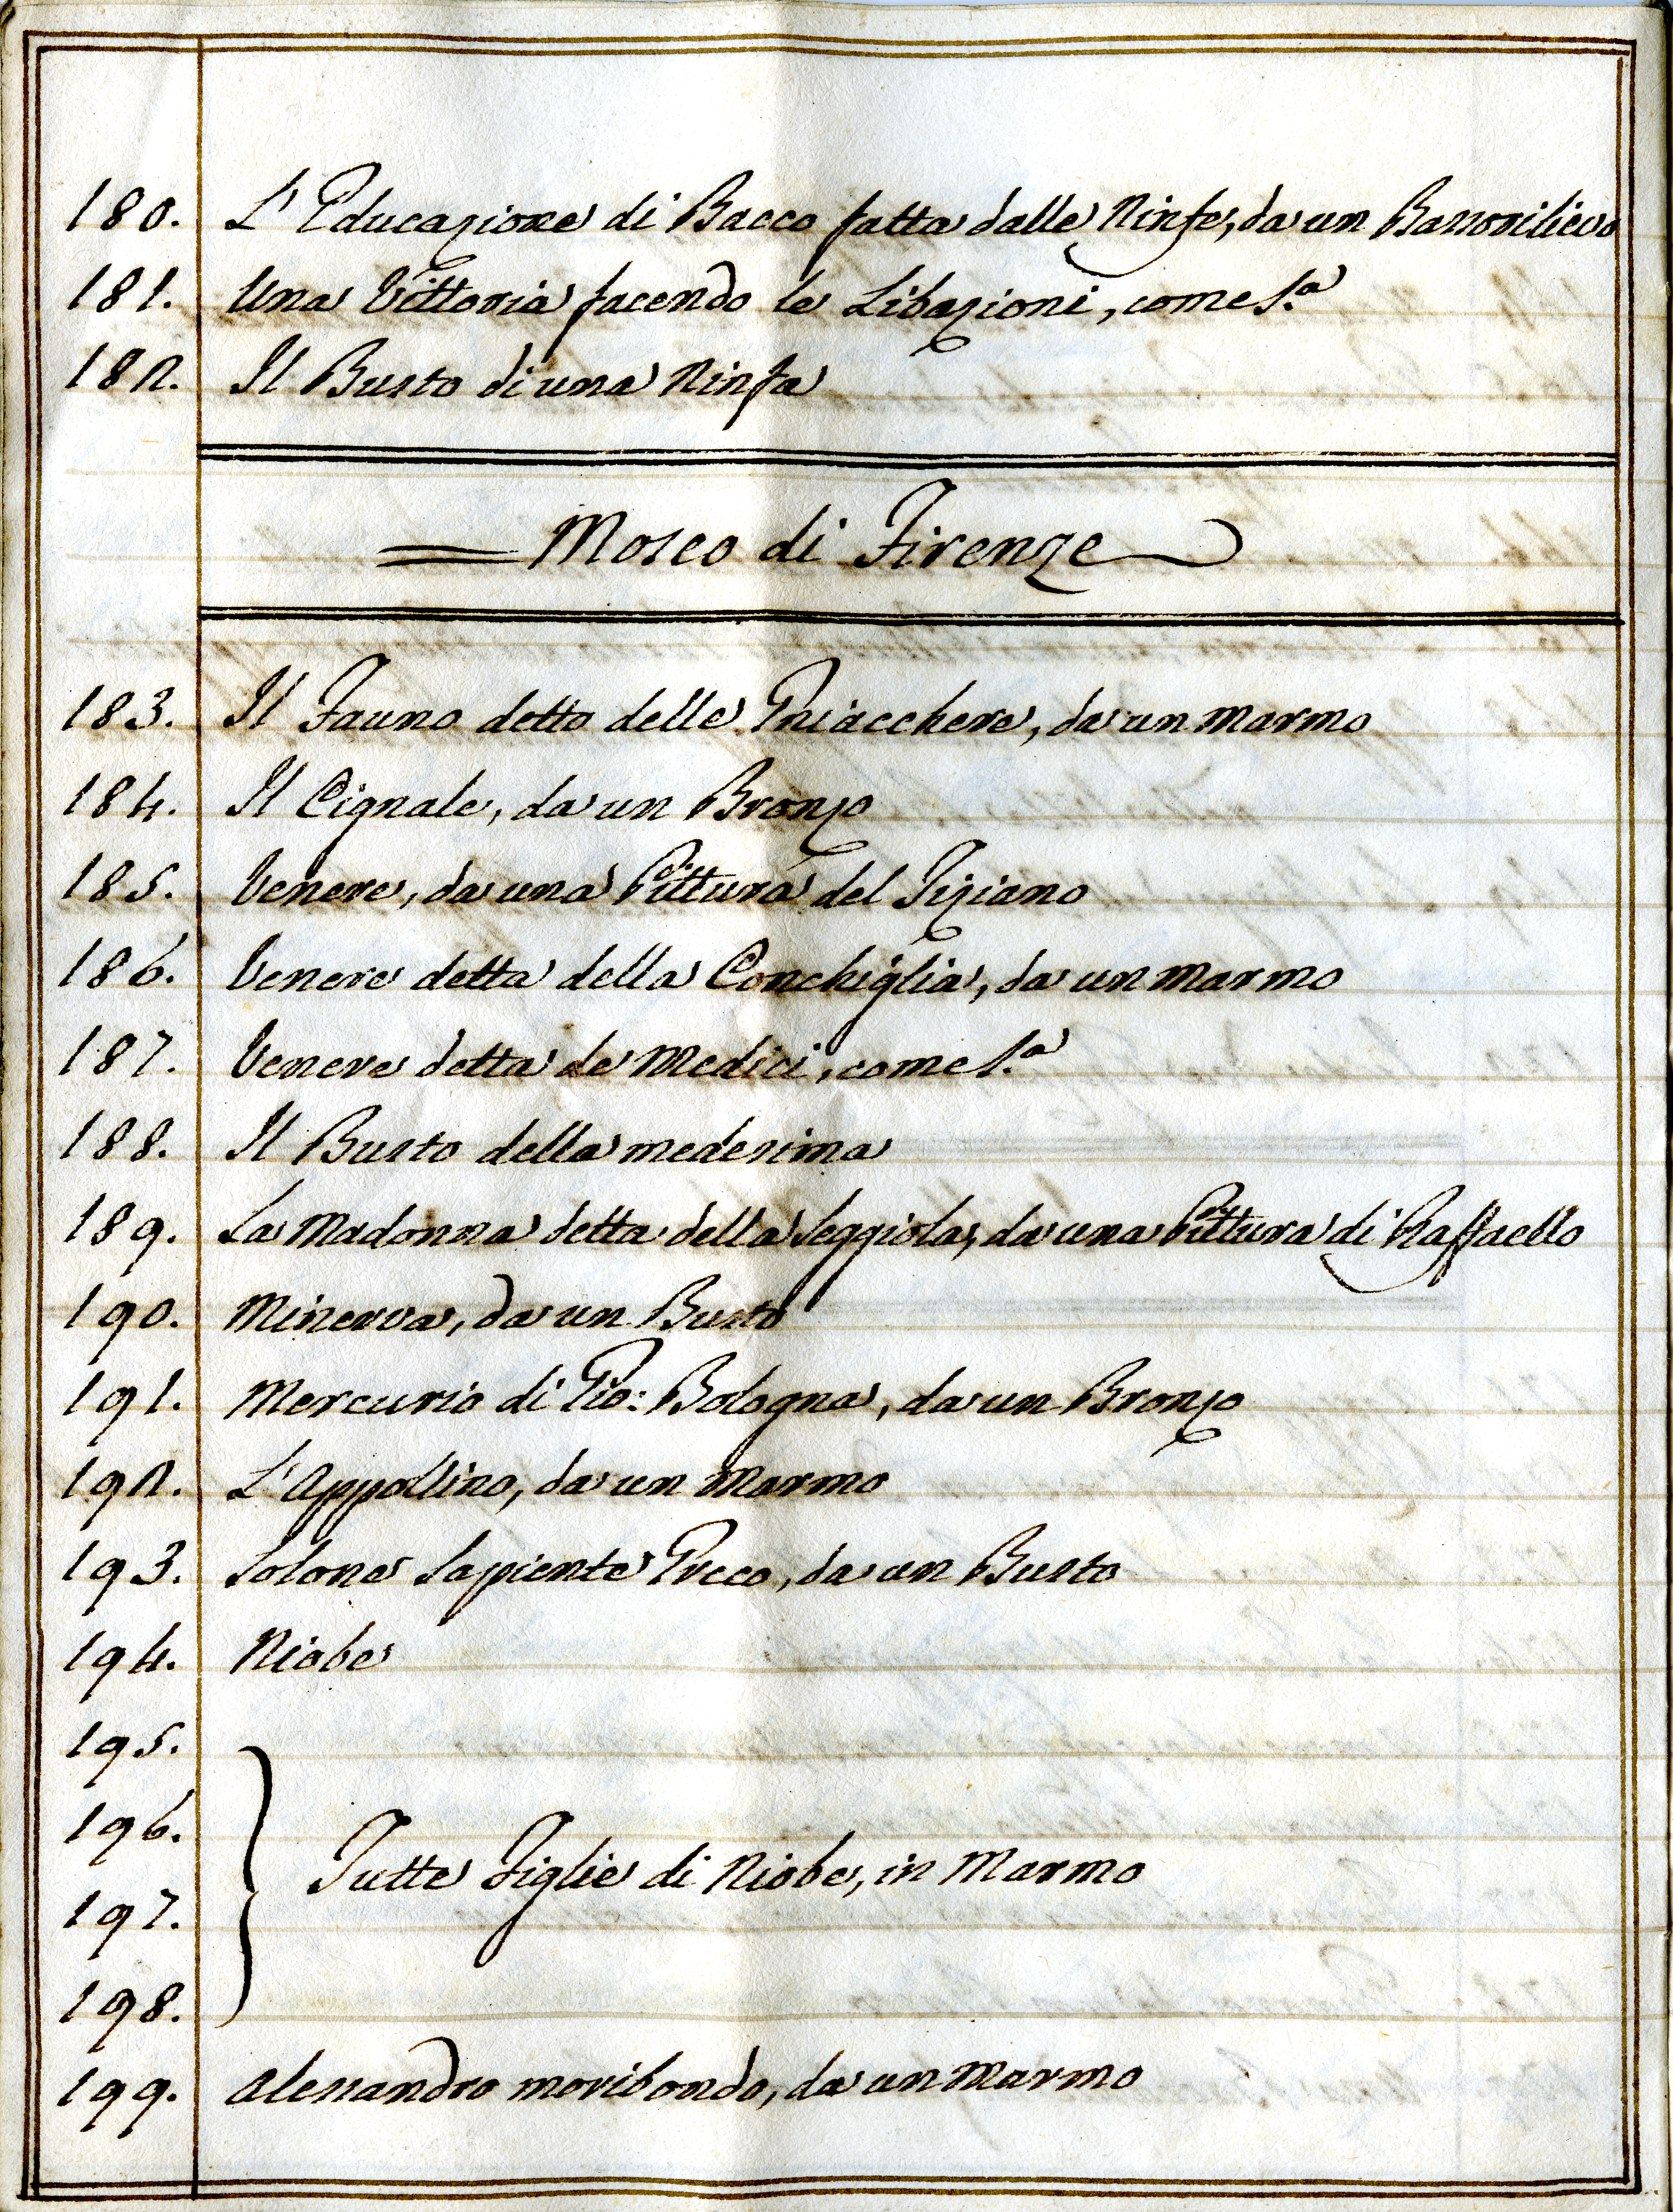 180. L'Educazione di Bacco fatta dalle Ninfe, da un Bassorilievo
181. Una Vittoria facendo le Libazioni, come s.ª
182. Il Busto di una Ninfa
Moseo di Firenze
183. Il Fauno detto delle Gniacchere, da un Marmo
184. Il Cignale, da un Bronzo
185. Venere, da una Pittura del Tiziano
186. Venere detta della Conchiglia, da un Marmo
187. Venere detta de Medici, come s.ª
188. Il Busto della medesima
189. La Madonna detta della Seggiola, da una Pittura di Raffaello
190. Minerva, da un Busto
191. Mercurio di Gio: Bologna, da un Bronzo
192. L'Appollino, da un Marmo
193. Solone Sapiente Greco, da un Busto
194. Niobe
195.
196.
Tutte Figlie di Niobe, in Marmo
197.
198.
199. Alessandro moribondo, da un Marmo